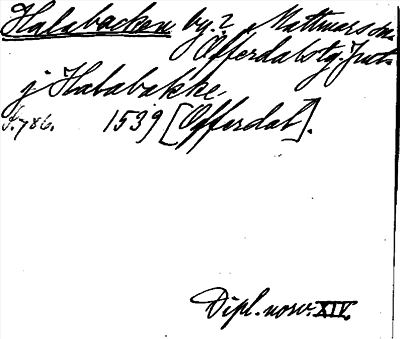 Halabacken by.? Mattmars sn.
Offerdals tg. Jmtl.
j Halabakke.
S. 786. 1539 [Offerdal].
Dipl. norv. XIV.